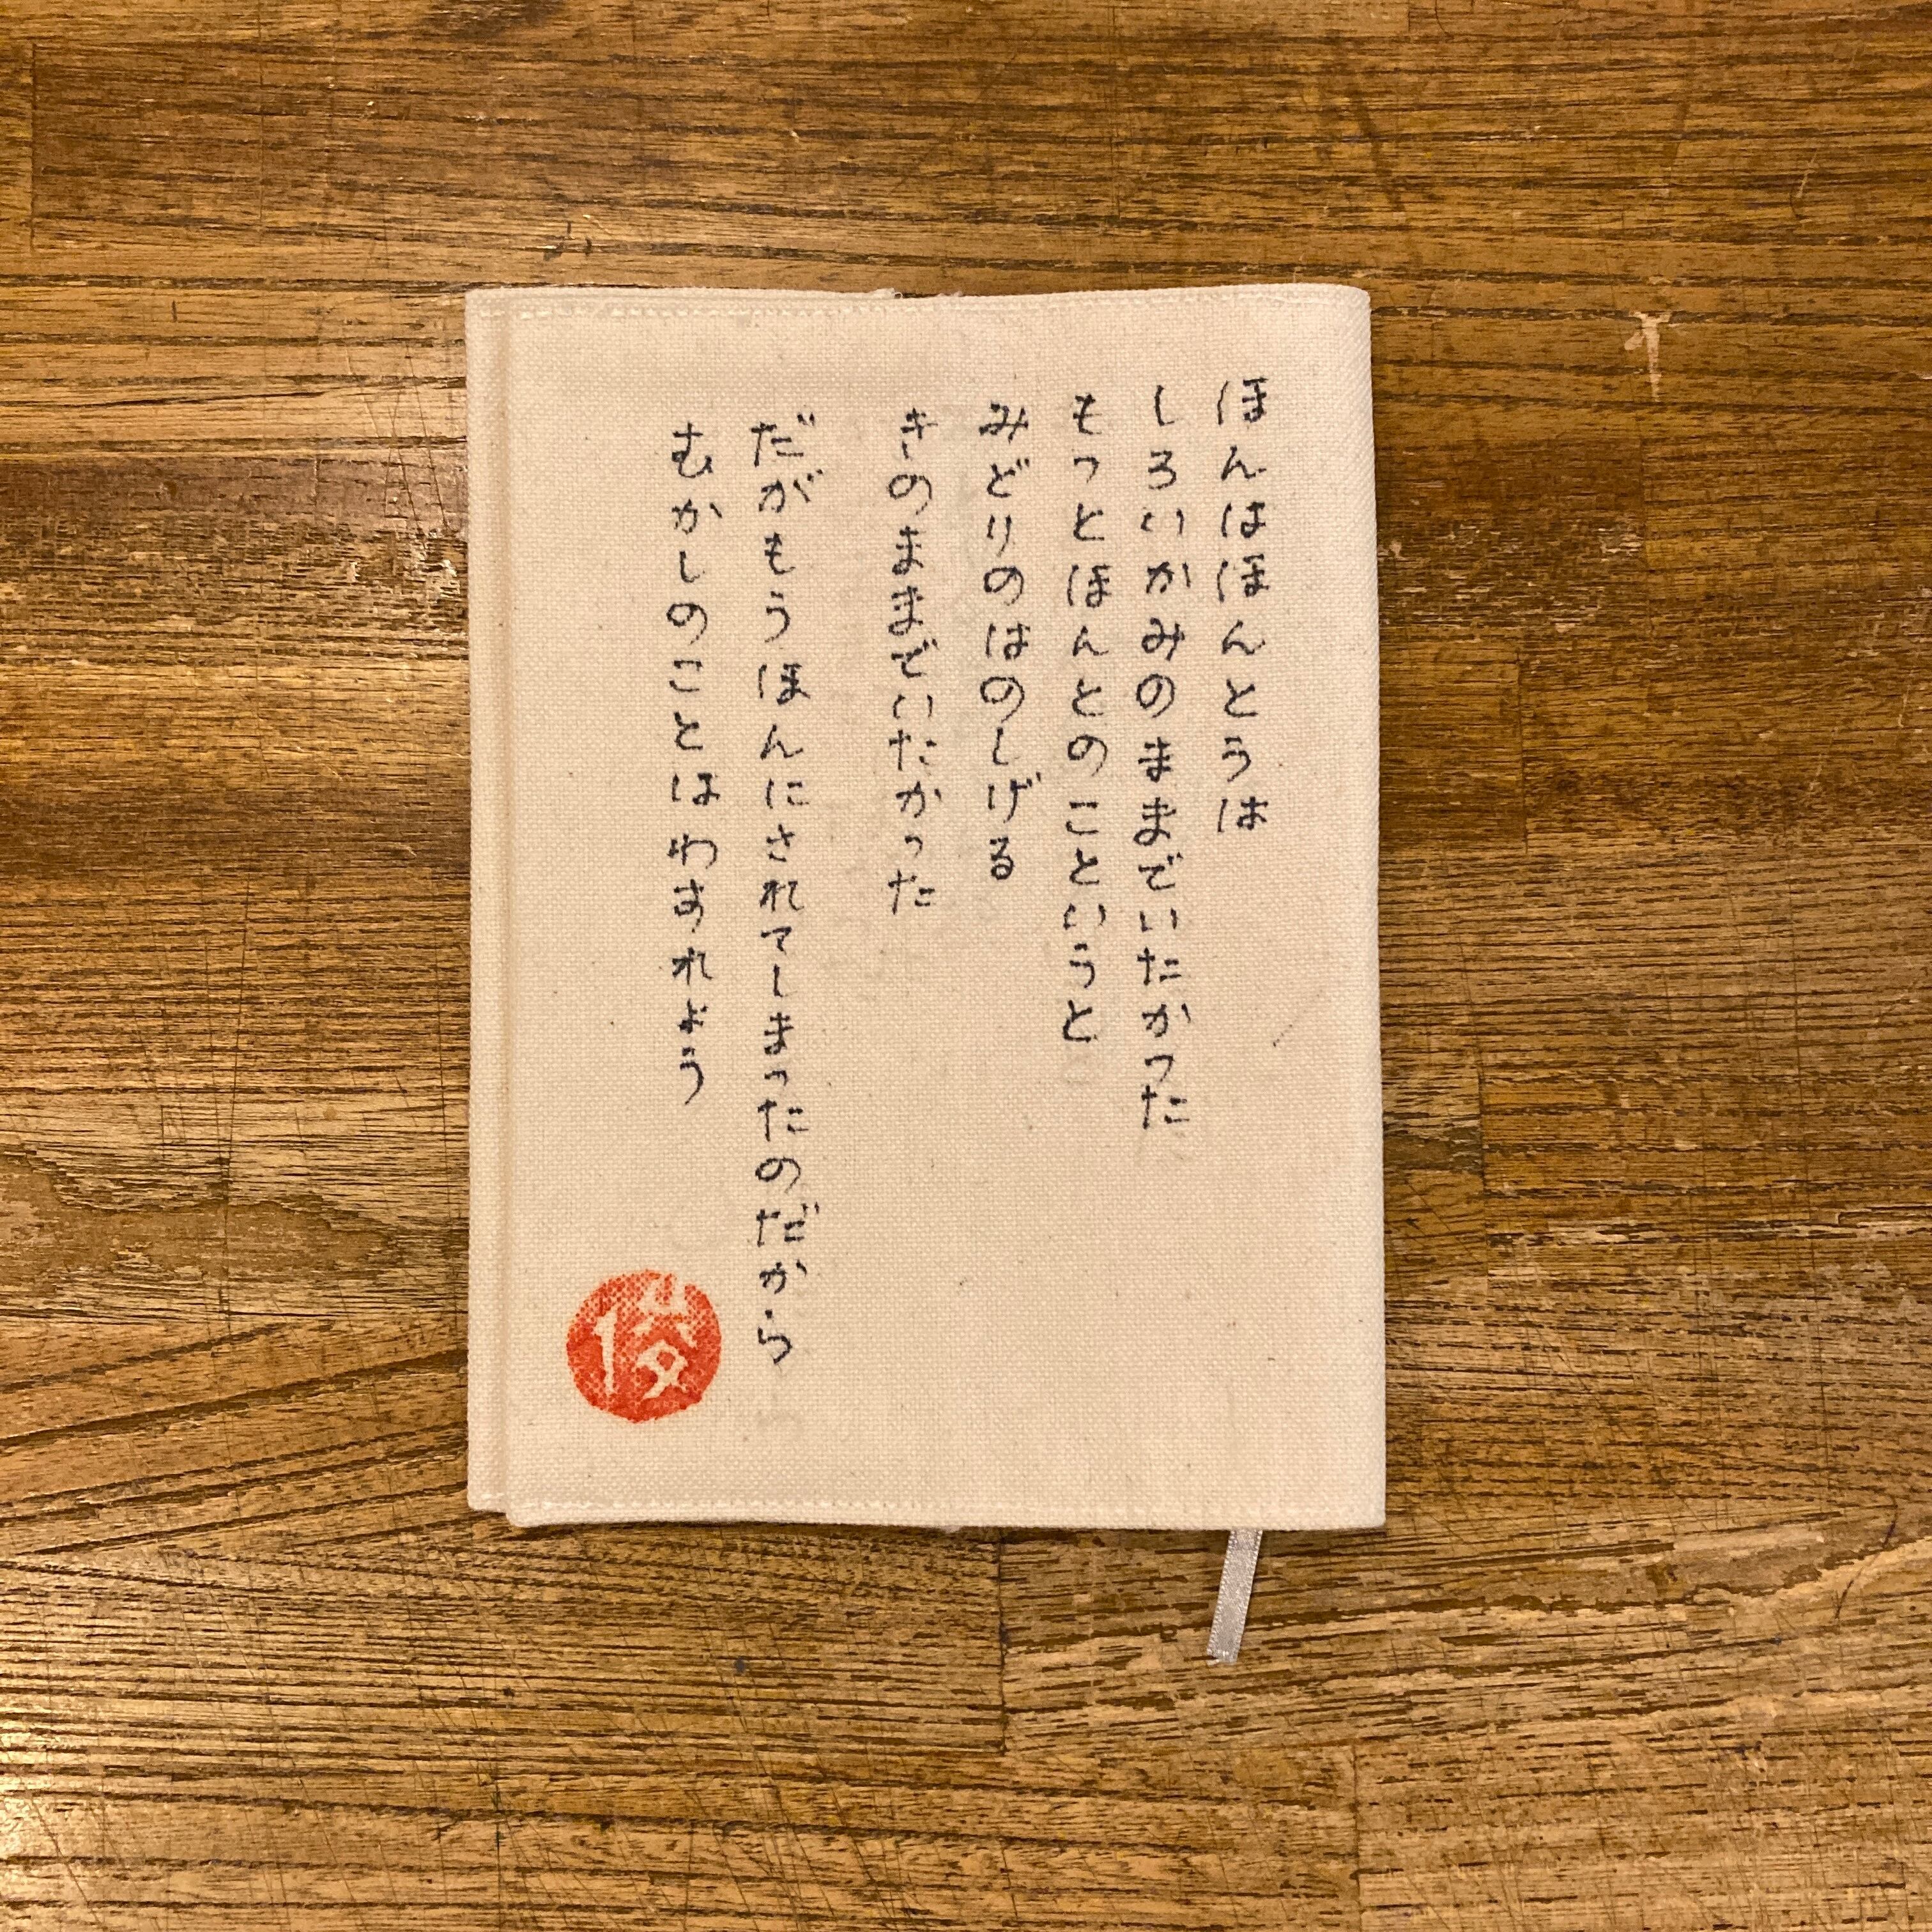 ほんはほんとうは
しろいかみのままでいたかった
もっとほんとのこというと
みどりのはのしげる
きのままでいたかった
だがもうほんにされてしまったのだから
むかしのことはわすれよう
俊